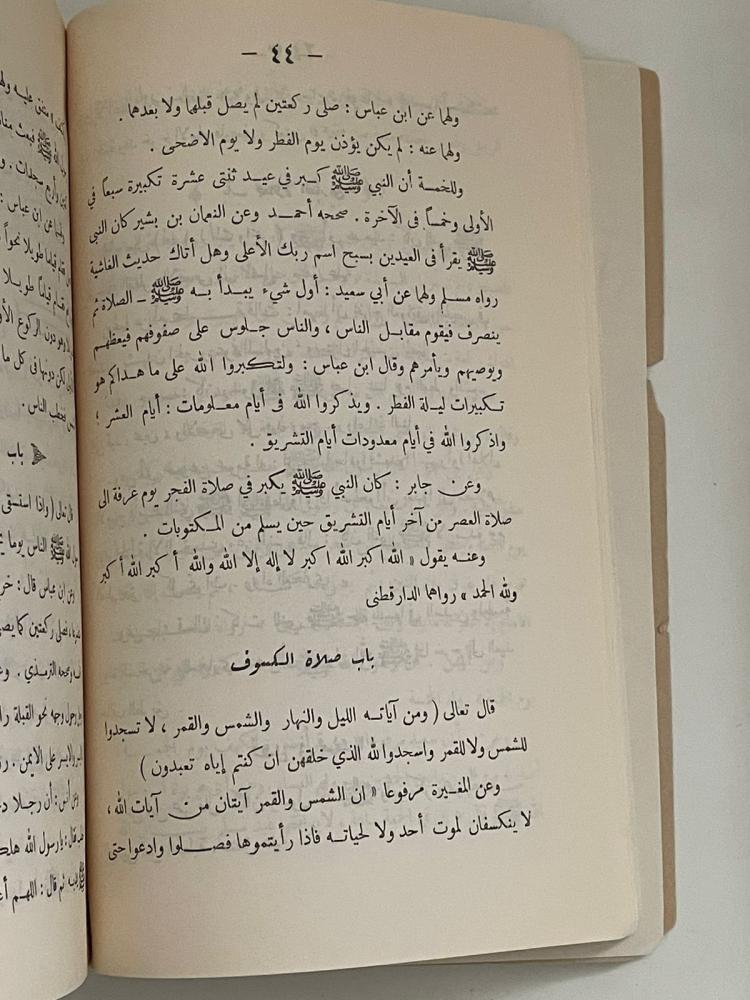 — ٤٤ —
ولهما عن ابن عباس : صلى ركعتين لم يصل قبلها ولا بعدهما .
ولهما عنه : لم يكن يؤذن يوم الفطر ولا يوم الاضحى .
وللخمسة أن النبي ﷺ كبر في عيد ثنتى عشرة تكبيرة سبعاً في
الأولى وخمساً فى الآخرة . صححه أحمد وعن النعمان بن بشير كان النبي
ﷺ يقرأ فى العيدين بسبح اسم ربك الأعلى وهل أتاك حديث الغاشية
رواه مسلم ولهما عن أبي سعيد : أول شيء يبدأ به ﷺ ـ الصلاة ثم
ينصرف فيقوم مقابل الناس ، والناس جلوس على صفوفهم فيعظهم
ويوصيهم ويأمرهم وقال ابن عباس : ولتكبروا الله على ما هداكم هو
تكبيرات ليلة الفطر . ويذكروا الله فى أيام معلومات : أيام العشر ؛
واذكروا الله في أيام معدودات أيام التشريق .
وعن جابر : كان النبي ﷺ يكبر في صلاة الفجر يوم عرفة الى
صلاة العصر من آخر أيام التشريق حين يسلم من المكتوبات .
وعنه يقول « الله اكبر الله اكبر لا إله إلا الله والله أكبر الله أكبر
ولله الحمد » رواهما الدارقطنى
باب صلاة الكسوف
قال تعالى ( ومن آياته الليل والنهار والشمس والقمر ، لا تسجدوا
للشمس ولا للقمر واسجدوا لله الذي خلقهن ان كنتم إياه تعبدون )
وعن المغيرة مرفوعا « ان الشمس والقمر آيتان من آيات الله ،
لا ينكسفان لموت أحد ولا لحياته فاذا رأيتموها فصلوا وادعوا حتى